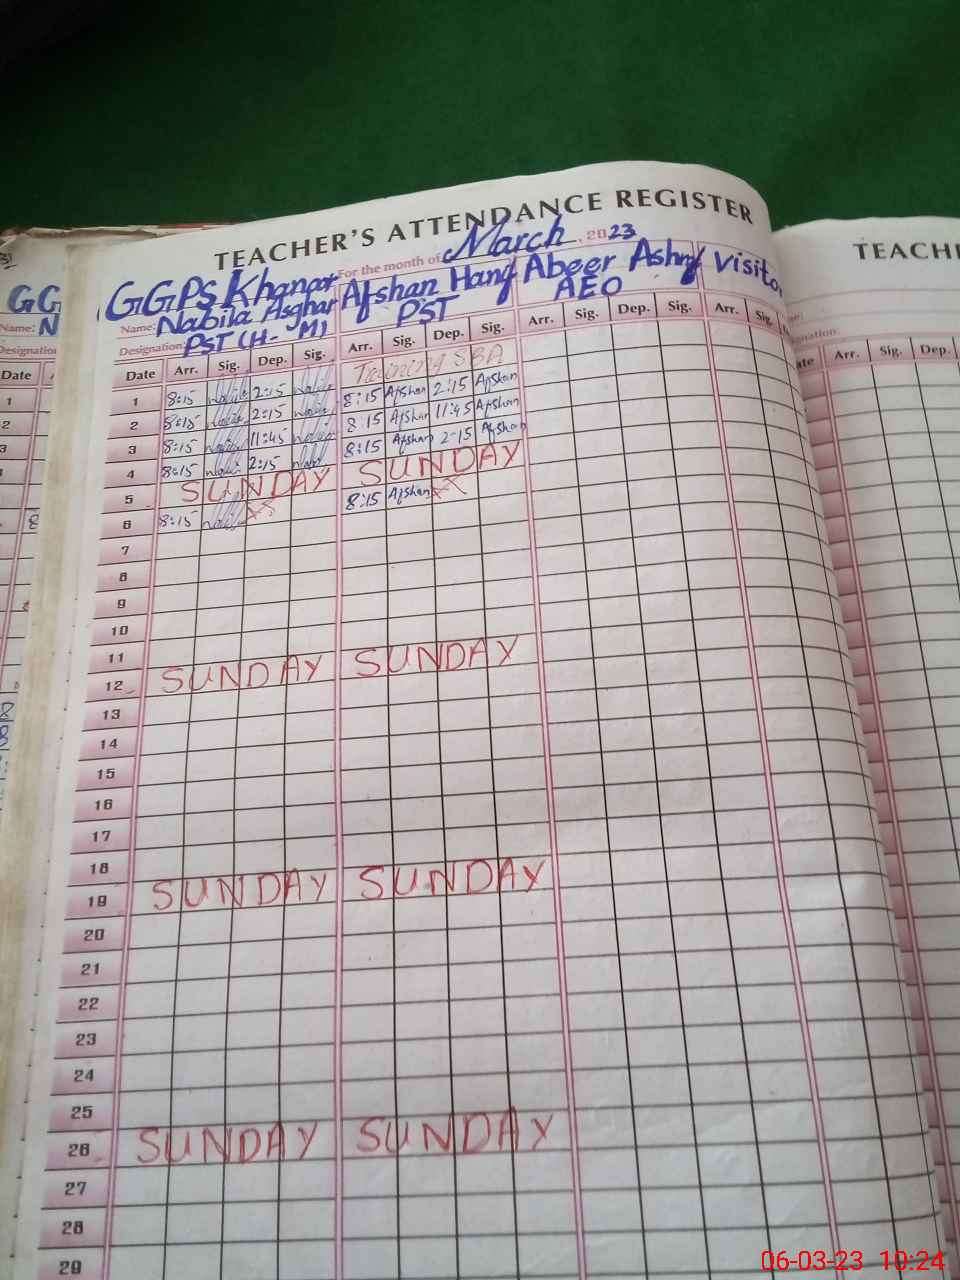 TEACHER'S ATTENDANCE REGISTER
For the month of March, 2023
GGPS Khanar
Name: Nabila Asghar Afshan Hanif Abeer Ashraf Visitor
Designation: PST (H-M) PST AEO
Date Arr. Sig. Dep. Sig. Arr. Sig. Dep. Sig. Arr. Sig. Dep. Sig. Arr. Sig.
1 8:15 2:15 Training SBA
2 8:15 2:15 8:15 Afshan 2:15 Afshan
3 8:15 11:45 8:15 Afshan 11:45 Afshan
4 8:15 2:15 8:15 Afshan 2-15 Afshan
5 SUNDAY SUNDAY
6 8:15 8:15 Afshan
7
8
9
10
11
12 SUNDAY SUNDAY
13
14
15
16
17
18
19 SUNDAY SUNDAY
20
21
22
23
24
25
26 SUNDAY SUNDAY
27
28
29
GG
Name: N
Designation
Date
1
2
3
TEACH
Arr. Sig. Dep.
06-03-23 10:24